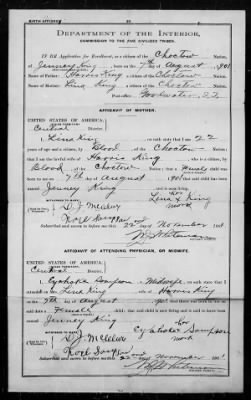 BIRTH AFFIDAVIT.
DEPARTMENT OF THE INTERIOR,
COMMISSION TO THE FIVE CIVILIZED TRIBES.
IN RE Application for Enrollment, as a citizen of the Choctaw Nation,
of Jenney King, born on the 7th day of August, 1901
Name of Father: Harris King a citizen of the Choctaw Nation.
Name of Mother: Lina King a citizen of the Choctaw Nation.
Postoffice Goodwater, I.T.
AFFIDAVIT OF MOTHER.
UNITED STATES OF AMERICA,
INDIAN TERRITORY,
Central District.
I, Lina King, on oath state that I am 22
years of age and a citizen, by Blood, of the Choctaw Nation;
that I am the lawful wife of Harris King, who is a citizen, by
Blood, of the Choctaw Nation; that a Female child was
born to me on 7th day of August, 1901, that said child has been
named Jenney King, and is now living.
her
Lina x King
mark
Noel Sampson
Subscribed and sworn to before me this 22 day of November, 1901
AFFIDAVIT OF ATTENDING PHYSICIAN, OR MIDWIFE.
UNITED STATES OF AMERICA,
INDIAN TERRITORY,
Central District.
I, Sampson, a Midwife, on oath state that I
attended on Mrs. Lina King, wife of Harris King on the
7th day of August, 1901; that there was born to her on said date a
Female child; that said child is now living and is said to have been named
Jenney King
her
Sampson
mark
Noel Sampson
Subscribed and sworn to before me this 22 day of November, 1901